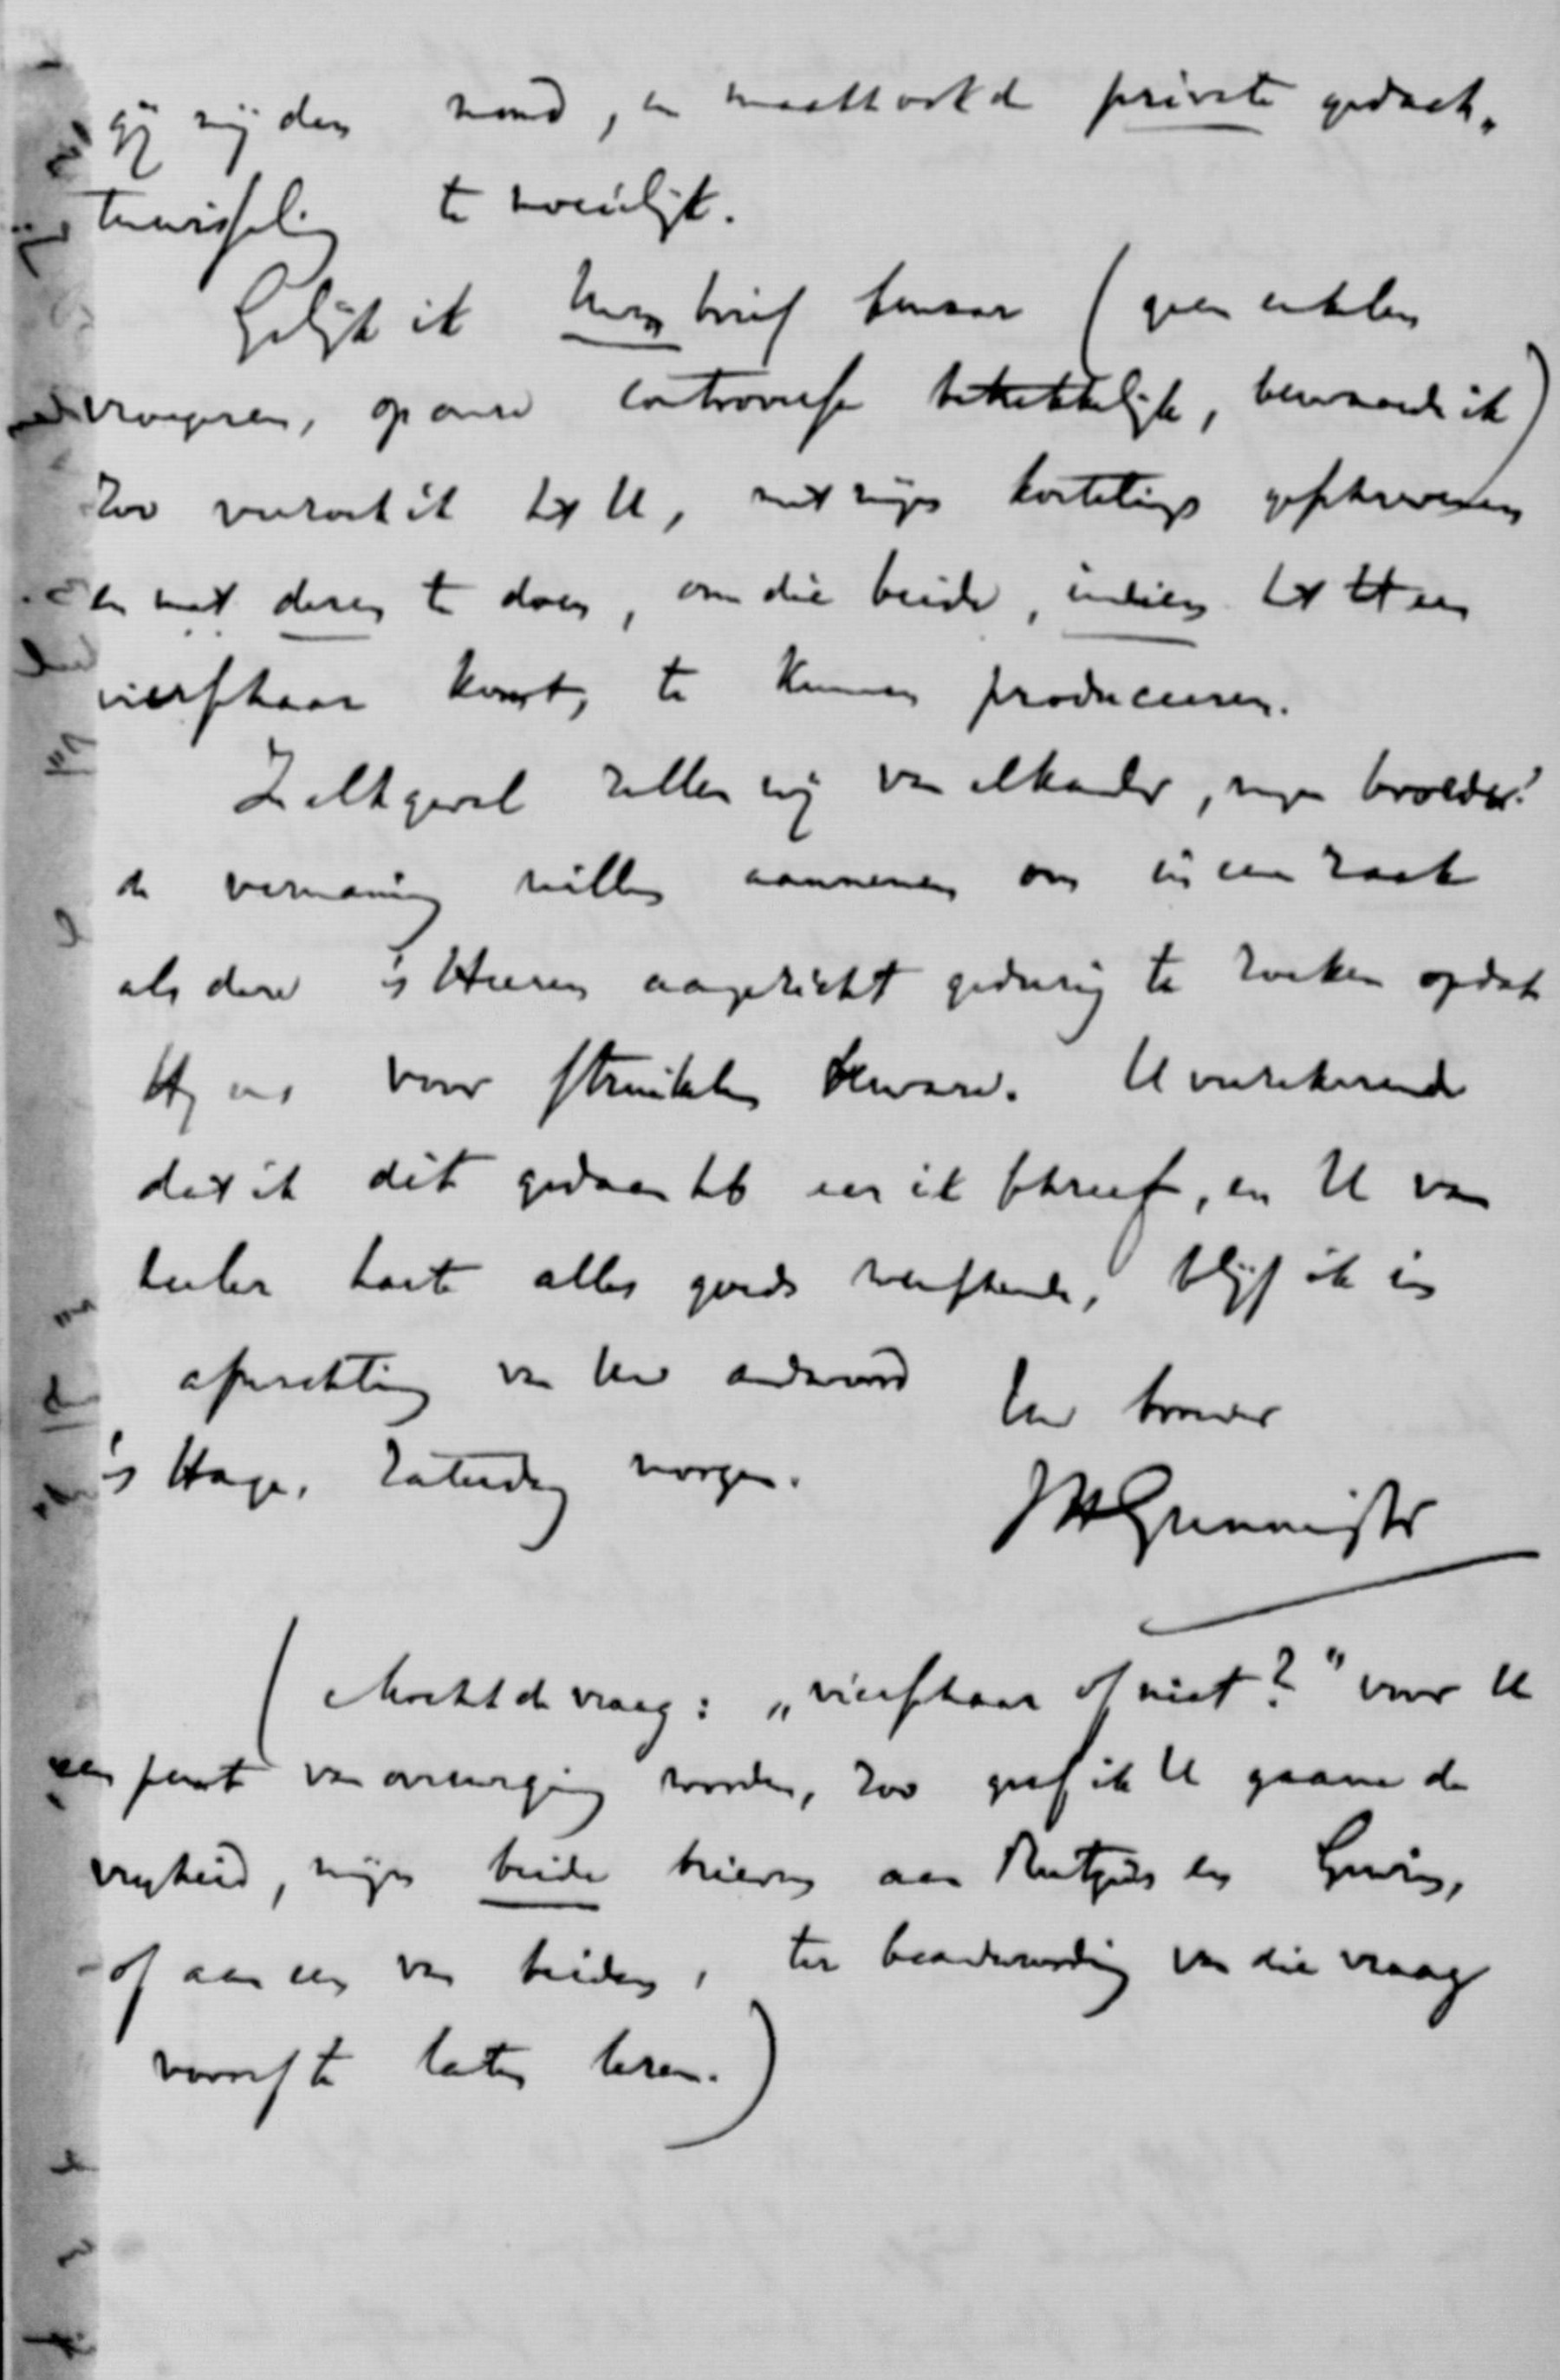 gij mij den mond, en maakt ook de private gedach„
tenwisseling te moeielijk.
Gelijk ik Uwen brief bewaar (geen enkelen
vroegeren, op onze controverse betrekkelijk, bewaarde ik)
zoo verzoek ik U, met mijn kortelings geschrevenen
en met dezen te doen, om die beide, indien het tot een
vierschaar komt, te kunnen produceeren.
In elk geval zullen wij van elkander, mijn broeder!
de vermaning willen aannemen om in een zaak
als deze 's Heeren aangezicht gedurig te zoeken opdat
Hij ons voor struikelen beware. U verzekerende
dat ik dit gedaan heb eer ik schreef, en U van
heeler harte alles goeds wenschende, blijf ik in
afwachting van Uw antwoord
Uw broeder
's Hage, Zaturdag morgen.
JHGunning Jr
(Mocht de vraag: „vierschaar of niet?” voor U
een punt van overweging worden, zoo geef ik U gaarne de
vrijheid, mijn beide brieven aan Rutgers en
of aan een van beiden, ter beantwoording van die vraag
vooraf te laten lezen.)